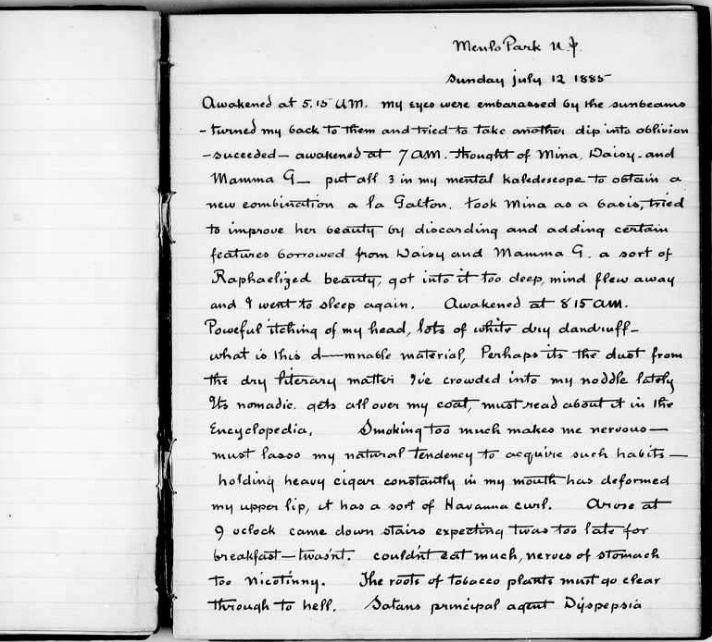 Menlo Park N.J.
Sunday July 12 1885
Awakened at 5.15 A.M. my eyes were embarassed by the sunbeams
- turned my back to them and tried to take another dip into oblivion
- succeeded - awakened at 7 A.M. thought of Mina, Daisy, and
Mamma G— put all 3 in my mental kaledescope to obtain a
new combination a la Galton. took Mina as a basis, tried
to improve her beauty by discarding and adding certain
features borrowed from Daisy and Mamma G. a sort of
Raphaelized beauty, got into it too deep, mind flew away
and I went to sleep again. Awakened at 8 15 AM.
Poweful itching of my head, lots of white dry dandruff—
what is this d—mnable material, Perhaps its the dust from
the dry literary matter I've crowded into my noddle lately
Its nomadic. gets all over my coat, must read about it in the
Encyclopedia. Smoking too much makes me nervous—
must lasso my natural tendency to acquire such habits—
holding heavy cigar constantly in my mouth has deformed
my upper lip, it has a sort of Havanna curl. Arose at
9 oclock came down stairs expecting twas too late for
breakfast—twasn't. couldn't eat much, nerves of stomach
too nicotinny. The roots of tobacco plants must go clear
through to hell. Satans principal agent Dyspepsia